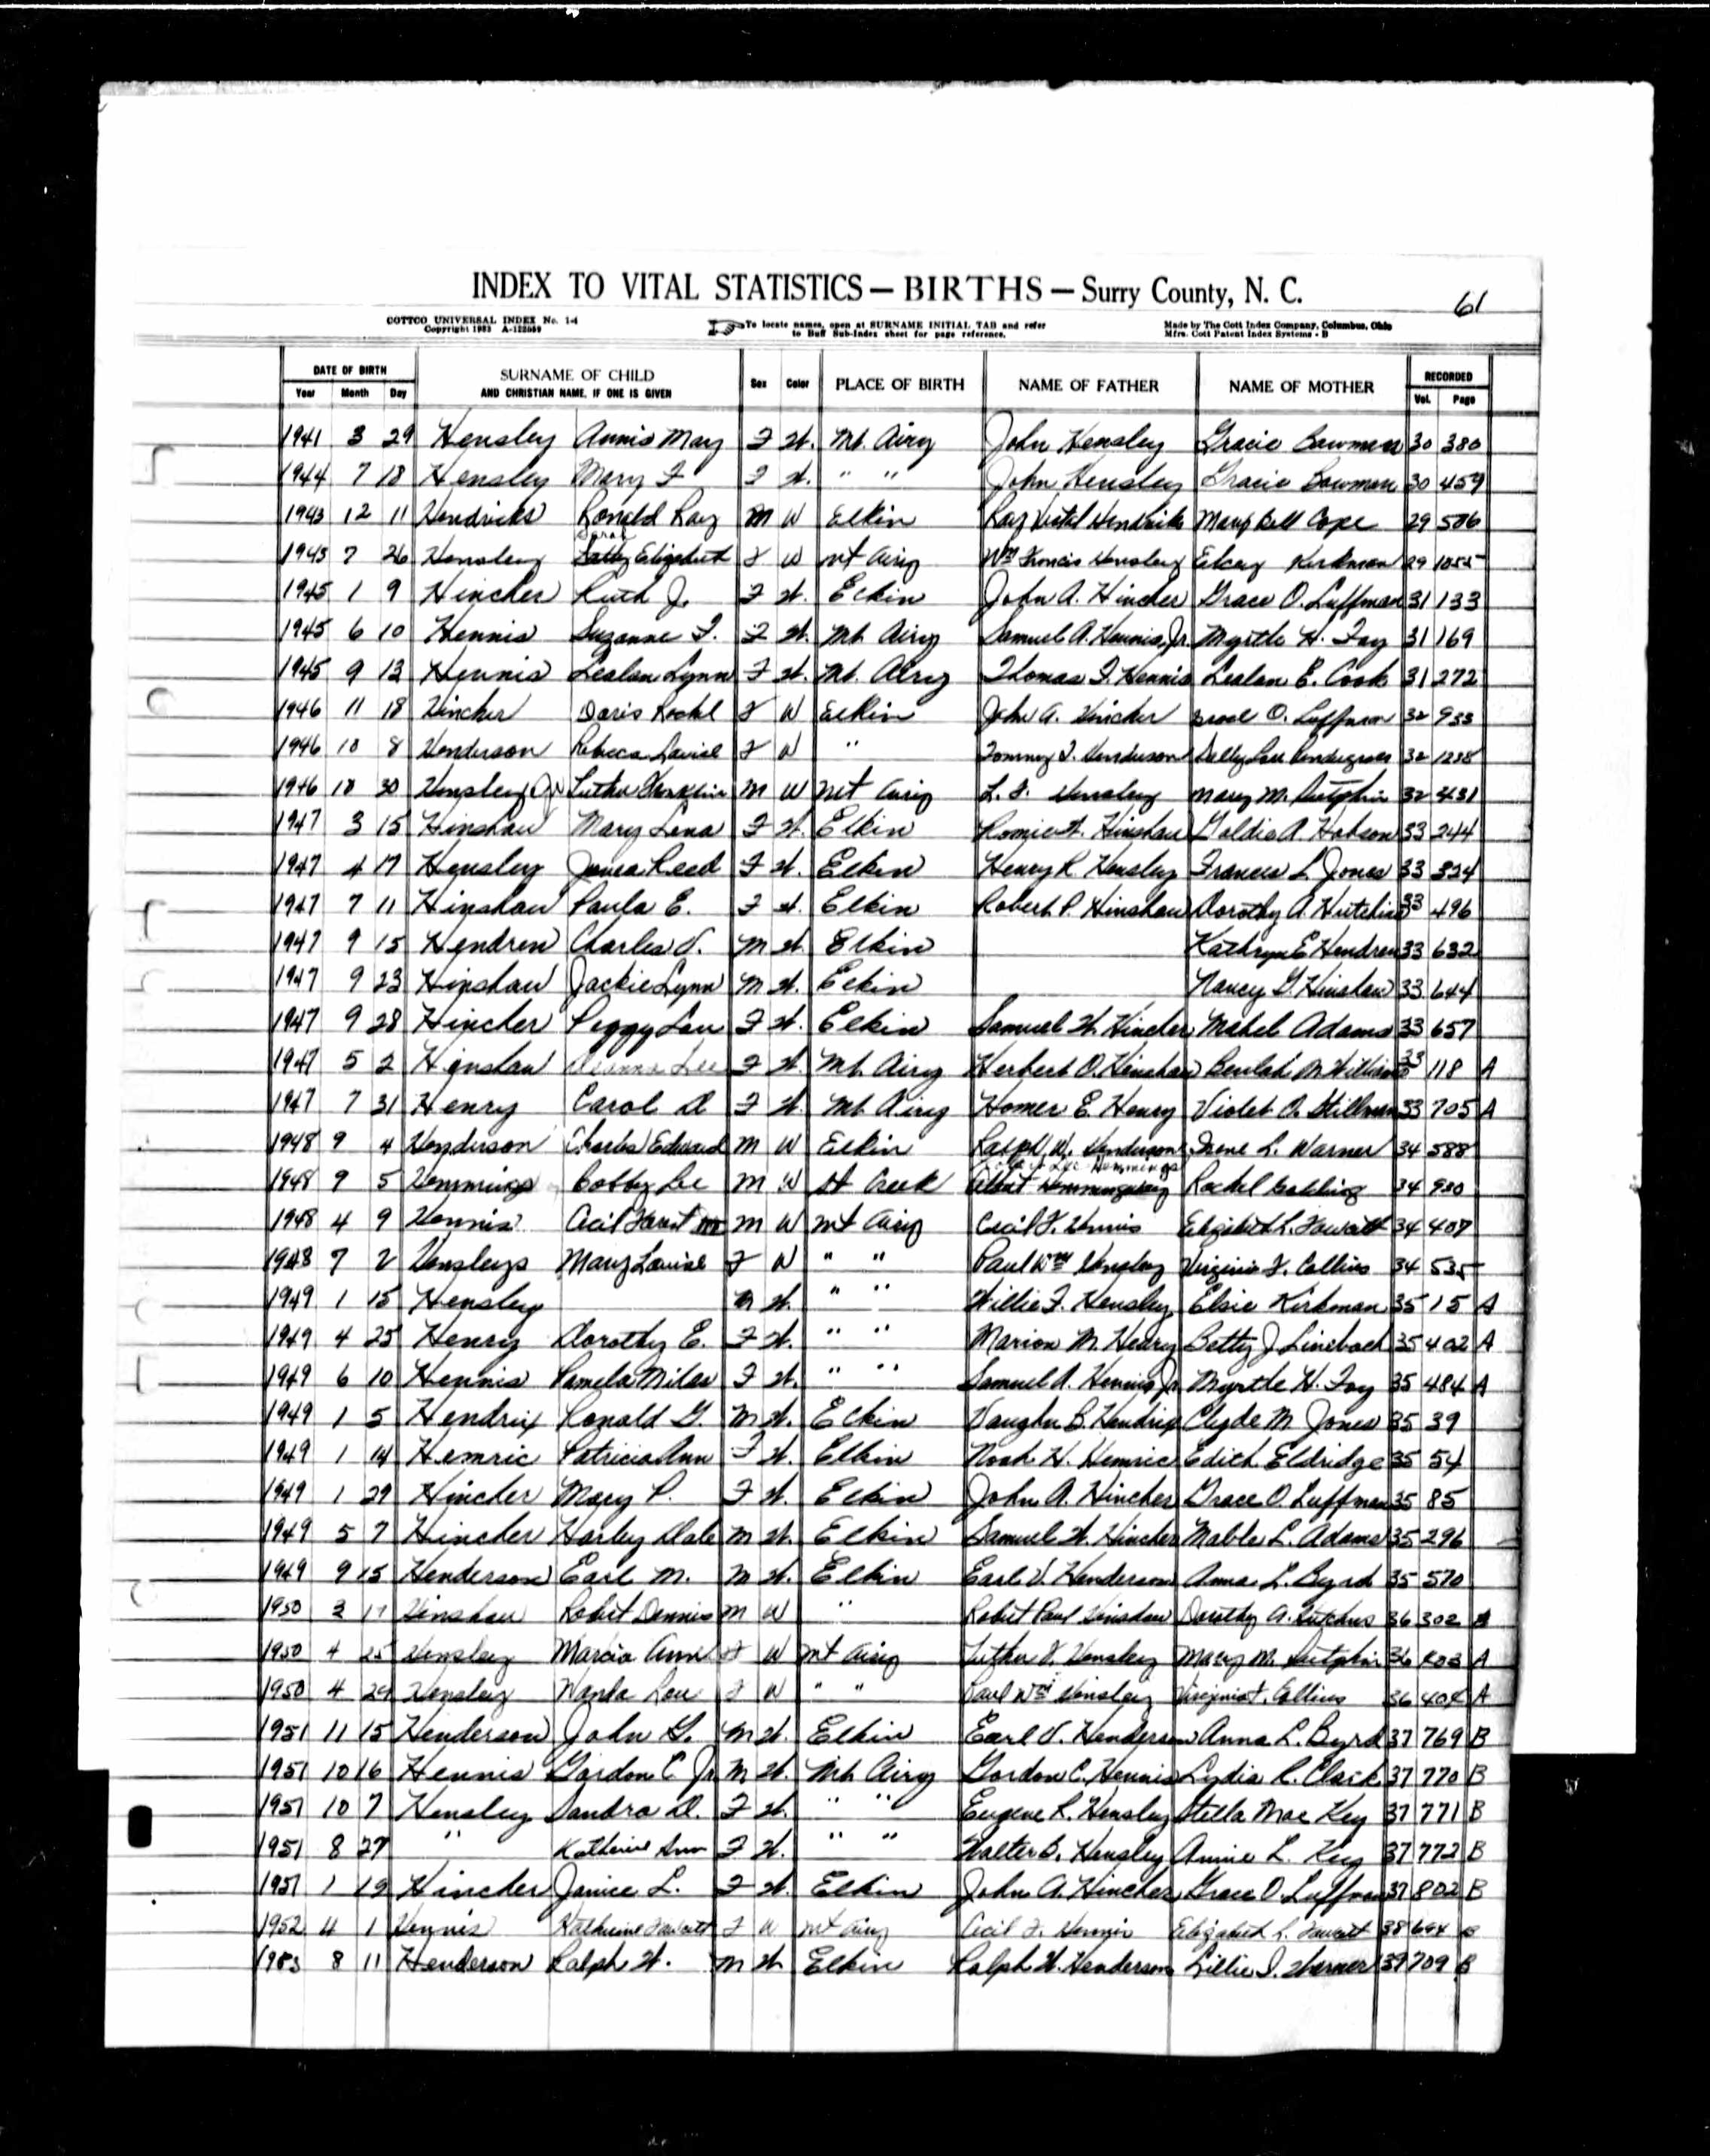 INDEX TO VITAL STATISTICS — BIRTHS — Surry County, N. C.
61
COTTCO UNIVERSAL INDEX No. 1-4
Copyright 1933 A-122059
To locate names, open at SURNAME INITIAL TAB and refer
to Buff Sub-Index sheet for page reference.
Made by The Cott Index Company, Columbus, Ohio
Mfrs. Cott Patent Index Systems - B
DATE OF BIRTH SURNAME OF CHILD AND CHRISTIAN NAME, IF ONE IS GIVEN Sex Color PLACE OF BIRTH NAME OF FATHER NAME OF MOTHER RECORDED
Year Month Day Vol. Page
1941 3 29 Hensley Annis May F W. Mt. Airy John Hensley Gracie Bowman 30 380
1944 7 18 Hensley Mary F F W. " " John Hensley Gracie Bowman 30 459
1943 12 11 Hendricks Ronald Ray M W Elkin Ray Vistal Hendriks Mary Bell Cope 29 506
Sarah
1943 7 26 Hensley Elizabeth F W Mt Airy Wm Francis Hensley Kirkman 29 1055
1945 1 9 Hincher Ruth J. F W. Elkin John A. Hincher Grace O. Luffman 31 133
1945 6 10 Hennis Suzanne F. F W. Mt. Airy Samuel A. Hennis, Jr. Myrtle H. Foy 31 169
1945 9 13 Hennis Lealan Lynn F W. Mt. Airy Thomas F. Hennis Lealan E. Cook 31 272
1946 11 18 Hincher Doris F W Elkin John A. Hincher O. Luffman 32 933
1946 10 8 Henderson Rebecca F W " Tommy Henderson 32 1238
1946 10 30 Hensley Jr Luther Franklin M W Mt Airy L. F. Hensley Mary M. Sutphin 32 431
1947 3 15 Hinshaw Mary Lena F W. Elkin Romie W. Hinshaw Goldie A. Hobson 33 244
1947 4 17 Hensley Jones Reed F W. Elkin Henry R Hensley Frances L. Jones 33 324
1947 7 11 Hinshaw Paula E. F W. Elkin Robert P. Hinshaw Dorothy A. Hutchins 33 496
1947 9 15 Hendren Charles V. M W. Elkin Kathryn E Hendren 33 632
1947 9 23 Hinshaw Jackie Lynn M W. Elkin Nancy G. Hinshaw 33 644
1947 9 28 Hincher Peggy Lou F W. Elkin Samuel W. Hincher Mabel Adams 33 657
1947 5 2 Hinshaw Lee F W. Mt. Airy Herbert O. Hinshaw Beulah M Williams 33 118 A
1947 7 31 Henry Carol D F W. Mt. Airy Homer E. Henry Violet O. Stillman 33 705 A
1948 9 4 Henderson Charles Edward M W Elkin Ralph W. Henderson Irene L. Warner 34 588
Lee Hemmings
1948 9 5 Hemmings Bobby Lee M W St Creek Rachel 34 930
1948 4 9 Hennis Cecil M W Mt Airy Cecil F. Hennis Elizabeth L. Fawcett 34 407
1948 7 2 Hensleys Mary Louise F W " " Paul Wm Hensley Virginia F. Collins 34 535
1949 1 15 Hensley M W. " " Willie F. Hensley Elsie Kirkman 35 15 A
1949 4 25 Henry Dorothy E. F W. " " Marion M. Henry Betty J Linebach 35 402 A
1949 6 10 Hennis Pamela Miles F W. " " Samuel A. Hennis, Jr Myrtle H. Foy 35 484 A
1949 1 5 Hendrix Ronald G. M W. Elkin Vaughn B. Hendrix Clyde M Jones 35 39
1949 1 14 Hemric Patricia Ann F W. Elkin Noah H. Hemric Edith Eldridge 35 54
1949 1 29 Hincher Mary P. F W. Elkin John A. Hincher Grace O. Luffman 35 85
1949 5 7 Hincher Harley Dale M W. Elkin Samuel W. Hincher Mable L. Adams 35 296
1949 9 15 Henderson Earl M. M W. Elkin Earl V. Henderson Anna L. Byrd 35 570
1950 3 17 Hinshaw Robert Dennis M W " Robert Paul Hinshaw Dorothy A. Hutchins 36 302
1950 4 25 Hensley Marcia Anne F W Mt Airy Luther F. Hensley Mary M. Sutphin 36 A
1950 4 29 Hensley Wanda Lou F W " " Paul Wm Hensley Virginia F. Collins 36 404 A
1951 11 15 Henderson John G. M W. Elkin Earl V. Henderson Anna L. Byrd 37 769 B
1951 10 16 Hennis Gordon C Jr M W. Mt. Airy Gordon C. Hennis Lydia R. Clark 37 770 B
1951 10 7 Hensley Sandra D. F W. " " Eugene R. Hensley Stella Mae Key 37 771 B
1951 8 27 " Katherine Ann F W. " " Walter B. Hensley Annie L. Key 37 772 B
1951 1 19 Hincher Janice L. F W. Elkin John A. Hincher Grace O. Luffman 37 802 B
1952 4 1 Hennis Katherine Fawcett F W Mt Airy Cecil F. Hennis Elizabeth L. Fawcett 38 694 B
1953 8 11 Henderson Ralph W. M W Elkin Ralph W. Henderson Lillie I. Warner 39 709 B